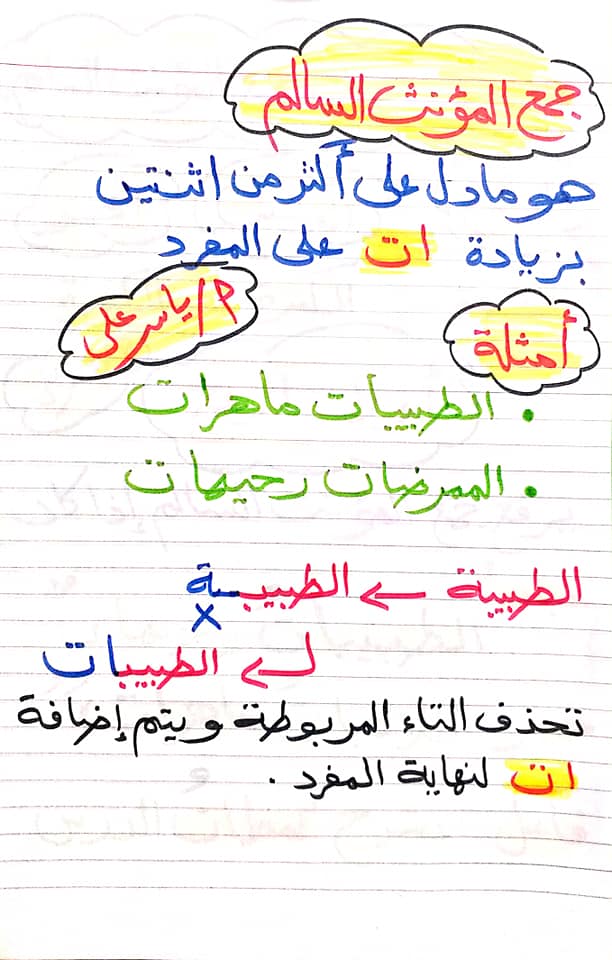 جمع المؤنث السالم
هو ما دل على أكثر من اثنتين
بزيادة ات على المفرد
م/ ياسر على
أمثلة
• الطبيبات ماهرات
• الممرضات رحيمات
الطبيبة ← الطبيبة
×
← الطبيبات
تحذف التاء المربوطة ويتم إضافة
ات لنهاية المفرد .